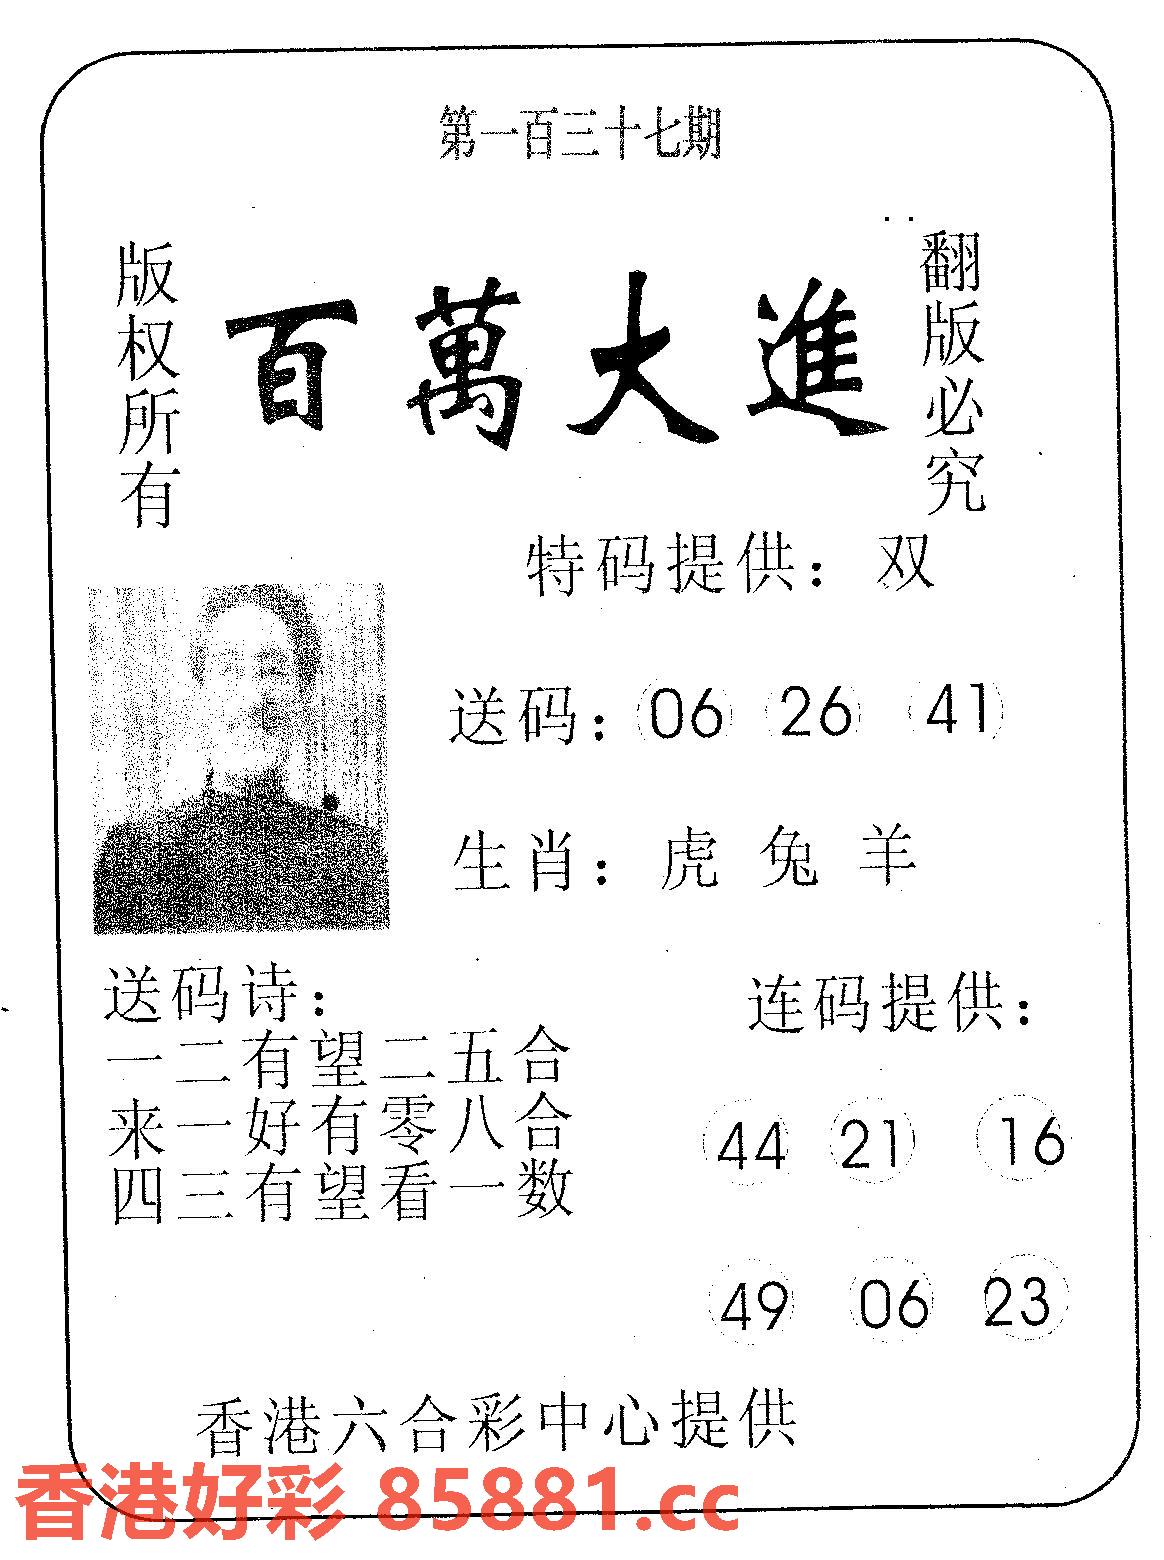 第一百三十七期
版权所有
百萬大進
翻版必究
特码提供：双
送码：06 26 41
生肖：虎 兔 羊
送码诗：
一二有望二五合
来一好有零八合
四三有望看一数
连码提供：
44 21 16
49 06 23
香港六合彩中心提供
香港好彩 85881.cc